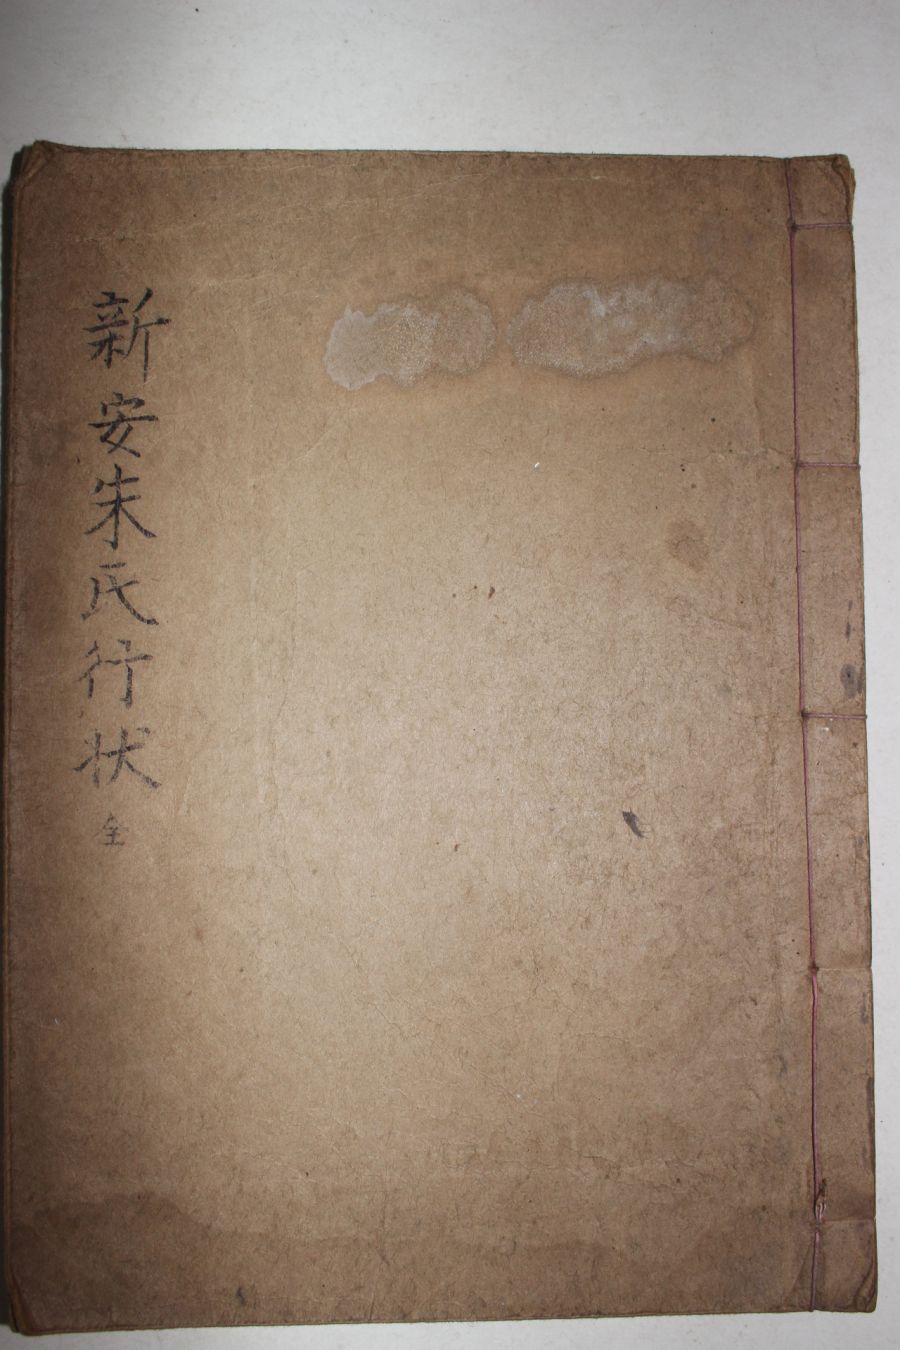 新安朱氏行状全